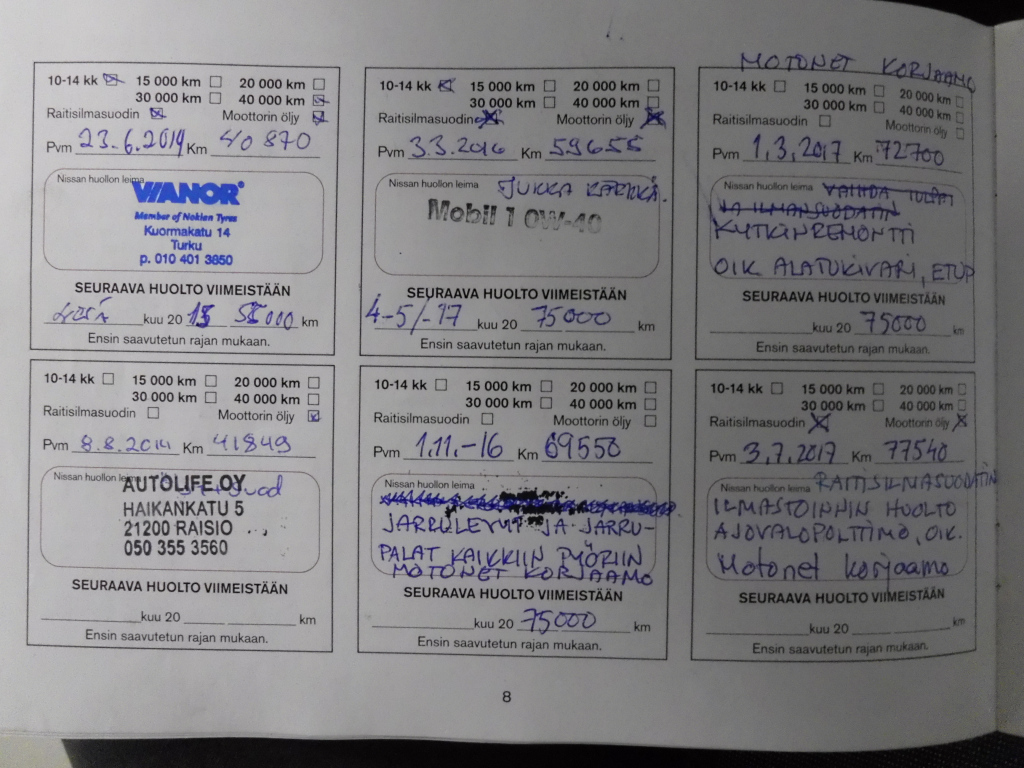 10-14 kk 15 000 km 20 000 km
30 000 km 40 000 km
Raitisilmasuodin Moottorin öljy
Pvm 23.6.2014 Km 40 870
Nissan huollon leima
VIANOR
Member of Nokian Tyres
Kuormakatu 14
Turku
p. 010 401 3850
SEURAAVA HUOLTO VIIMEISTÄÄN
kuu 20 15 55000 km
Ensin saavutetun rajan mukaan.
10-14 kk 15 000 km 20 000 km
30 000 km 40 000 km
Raitisilmasuodin Moottorin öljy
Pvm 8.8.2014 Km 41849
Nissan huollon leima
AUTOLIFE OY
HAIKANKATU 5
21200 RAISIO
050 355 3560
SEURAAVA HUOLTO VIIMEISTÄÄN
kuu 20 km
Ensin saavutetun rajan mukaan.
10-14 kk 15 000 km 20 000 km
30 000 km 40 000 km
Raitisilmasuodin Moottorin öljy
Pvm 3.3.2016 Km 59655
Nissan huollon leima JUKKA
Mobil 1 0W-40
SEURAAVA HUOLTO VIIMEISTÄÄN
4-5/-17 kuu 20 75000 km
Ensin saavutetun rajan mukaan.
10-14 kk 15 000 km 20 000 km
30 000 km 40 000 km
Raitisilmasuodin Moottorin öljy
Pvm 1.11.-16 Km 69550
Nissan huollon leima
JARRULEVYT JA JARRU-
PALAT KAIKKIIN PYÖRIIN
MOTONET KORJAAMO
SEURAAVA HUOLTO VIIMEISTÄÄN
kuu 20 75000 km
Ensin saavutetun rajan mukaan.
MOTONET KORJAAMO
10-14 kk 15 000 km 20 000 km
30 000 km 40 000 km
Raitisilmasuodin Moottorin öljy
Pvm 1.3.2017 Km 72700
Nissan huollon leima VAIHDA TULPAT
JA ILMANSUODATIN
KYTKINREMONTTI
OIK ALATUKIVARI, ETUP
SEURAAVA HUOLTO VIIMEISTÄÄN
kuu 20 75000 km
Ensin saavutetun rajan mukaan.
10-14 kk 15 000 km 20 000 km
30 000 km 40 000 km
Raitisilmasuodin Moottorin öljy
Pvm 3.7.2017 Km 77540
Nissan huollon leima RAITISILMASUODATIN
ILMASTOINNIN HUOLTO
AJOVALOPOLTTIMO, OIK.
Motonet korjaamo
SEURAAVA HUOLTO VIIMEISTÄÄN
kuu 20 km
Ensin saavutetun rajan mukaan.
8